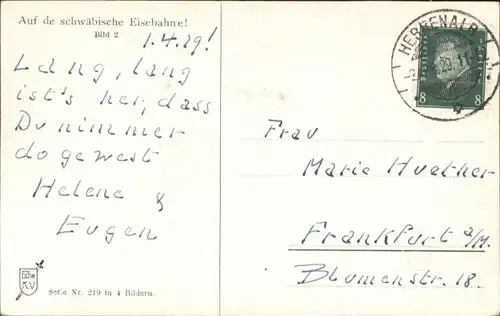 Auf de schwäbische Eisebahne!
Bild 2
1.4.29!
Lang, lang
ist's her, dass
Du nimmer
do gewest
Helene &
Eugen
Serie Nr. 219 in 4 Bildern.
HERRENALB
8 8
Frau
Marie Huether
Frankfurt a/M.
Blumenstr. 18.